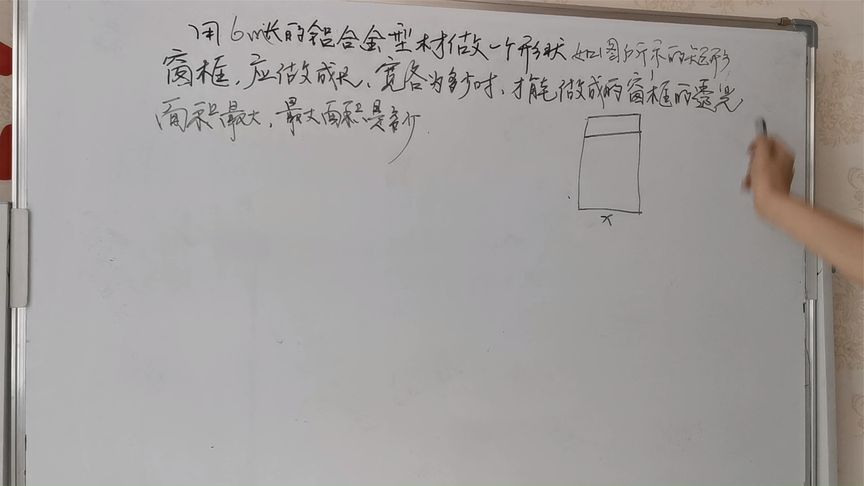 用6m长的铝合金型材做一个形状如图所示的矩形
窗框,应做成长、宽各为多少时,才能做成的窗框的透光
面积最大,最大面积是多少
x